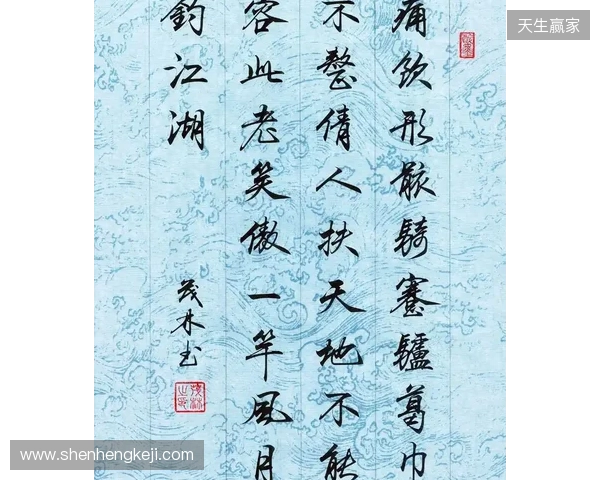 天生赢家
痛饮形骸骑蹇驴葛巾
不整倩人扶天地不能
容此老笑傲一竿风月
钓江湖
茂林书
www.shenhengkeji.com